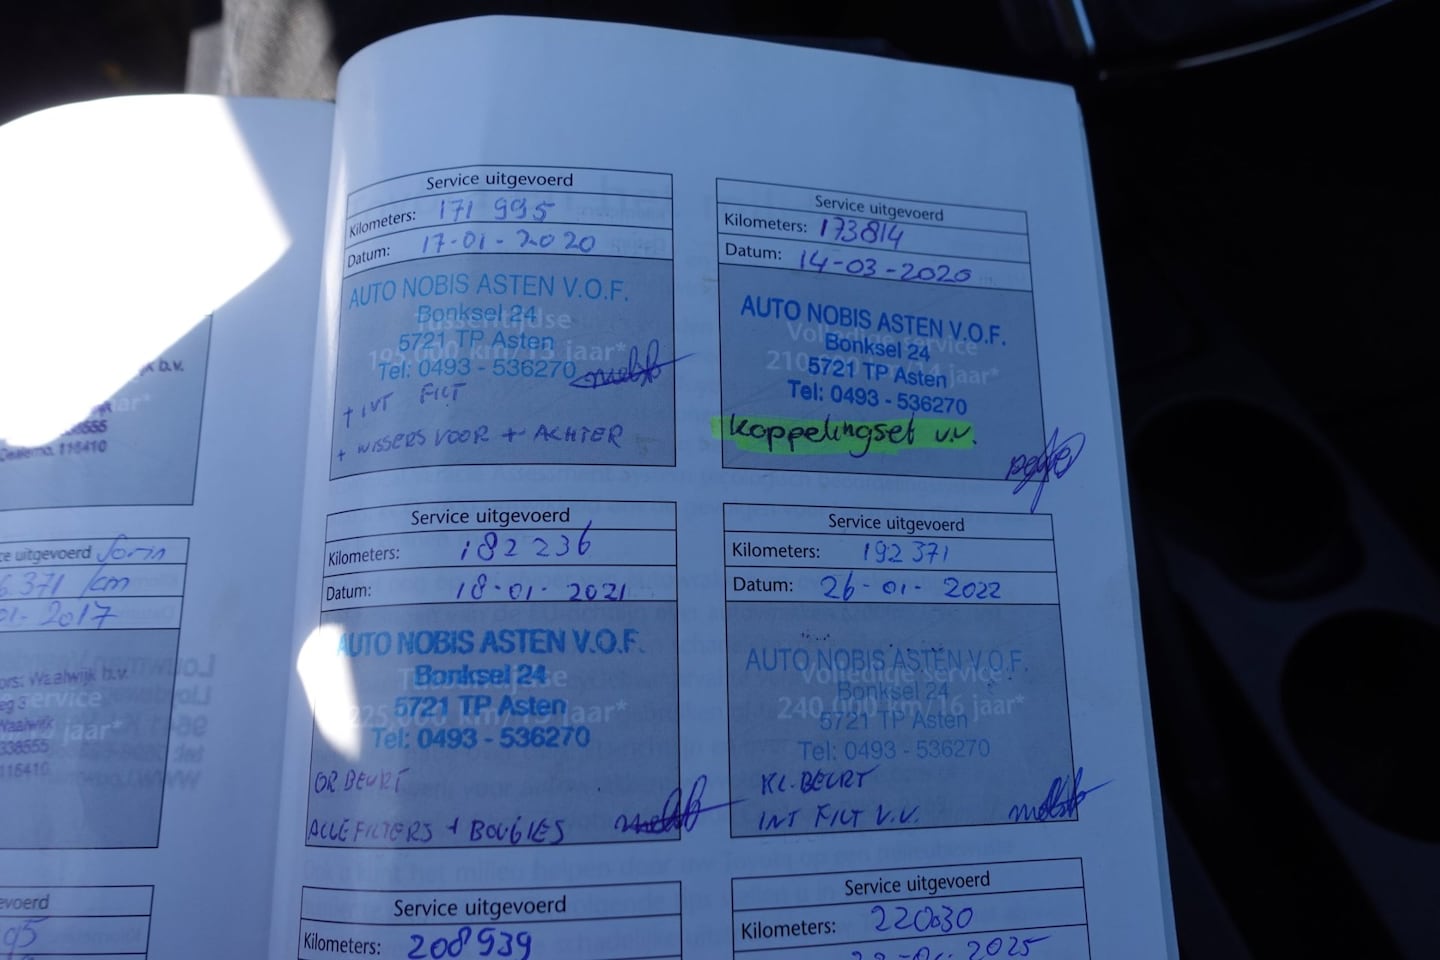 k b.v.
aar*
38555
Dealerno. 116410
ce uitgevoerd Jorin
6.371 km
01-2017
ors: Waalwijk b.v.
service
eg 3
Waalwijk
jaar*
338555
116410
evoerd
95
Service uitgevoerd
Kilometers: 171 995
Datum: 17-01-2020
AUTO NOBIS ASTEN V.O.F.
Bonksel 24
Tussentijdse
5721 TP Asten
195.000 km/13 jaar*
Tel: 0493 - 536270
+ INT FILT
+ WISSERS VOOR + ACHTER
Service uitgevoerd
Kilometers: 173814
Datum: 14-03-2020
AUTO NOBIS ASTEN V.O.F.
Volledige service
Bonksel 24
210.000 km/14 jaar*
5721 TP Asten
Tel: 0493 - 536270
Koppelingset v.v.
Service uitgevoerd
Kilometers: 182 236
Datum: 18-01-2021
AUTO NOBIS ASTEN V.O.F.
Bonksel 24
Tussentijdse
5721 TP Asten
225.000 km/15 jaar*
Tel: 0493 - 536270
GR BEURT
ALLE FILTERS + BOUGIES
Service uitgevoerd
Kilometers: 192 371
Datum: 26-01-2022
AUTO NOBIS ASTEN V.O.F.
Volledige service
Bonksel 24
240.000 km/16 jaar*
5721 TP Asten
Tel: 0493 - 536270
KL. BEURT
INT FILT V.V.
Service uitgevoerd
Kilometers: 208939
Service uitgevoerd
Kilometers: 220030
2025